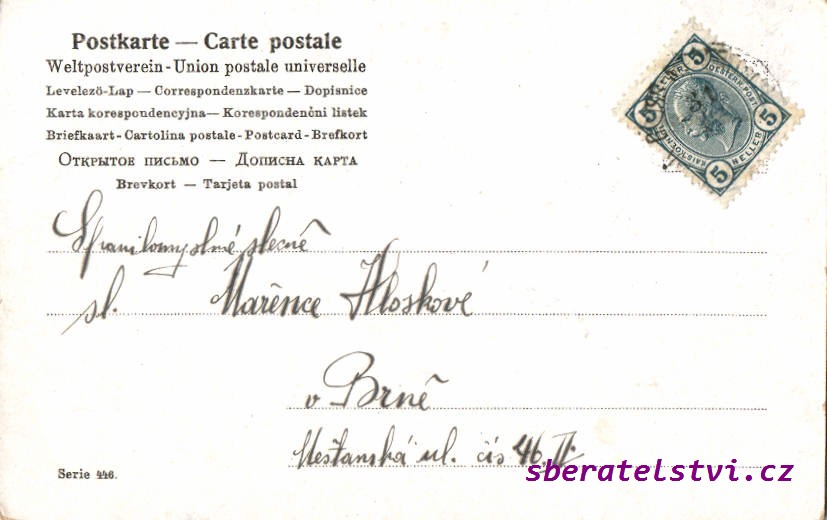 Postkarte — Carte postale
Weltpostverein - Union postale universelle
Levelező-Lap — Correspondenzkarte — Dopisnice
Karta korespondencyjna — Korespondenčni listek
Briefkaart - Cartolina postale - Postcard - Brefkort
Открытое письмо — Дописна карта
Brevkort — Tarjeta postal
5 5 5 5
HELLER
Spanilomyslné slečně
sl. Mařence Hloskové
v Brně
Měšťanská ul. čís 46. II.
Serie 446.
sberatelstvi.cz